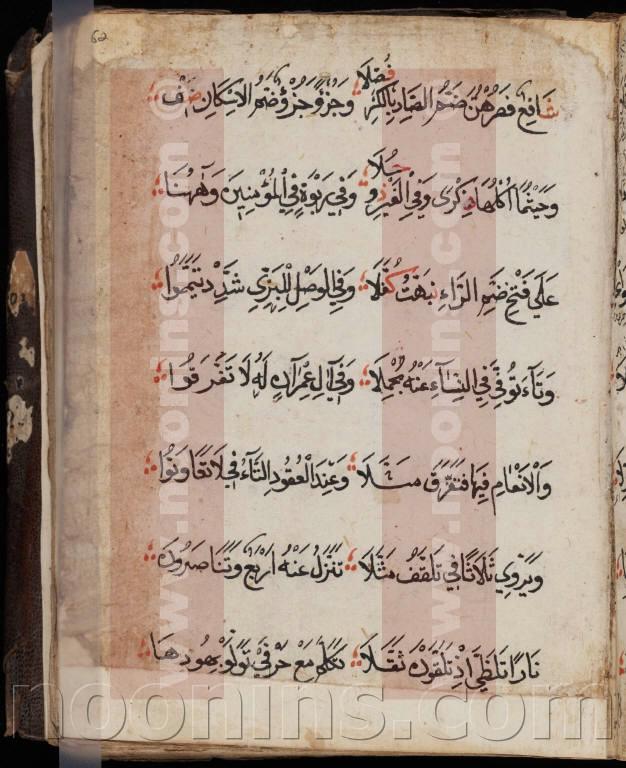 62
شافع فصرهن ضم الصاد بالكسر فصلا وجزؤا وجزؤ ضم الاسكان صف
وحيثما اكلها ذكرى وفي الغير ذو حلا وفي ربوة في المؤمنين وههنا
على فتح ضم الراء نبهت كفلا وفي الوصل للبزي شدد تيمموا
وتاء توفى في النساء عنه مجملا وفي آل عمران له لا تفرقوا
والانعام فيها فتفرق مثلا وعند العقود التاء في لا تعاونوا
ويروي ثلاثا في تلقف مثلا تنزل عنه اربع وتناصرون
نارا تلظى اذ تلقون ثقلا تكلم مع حرفي تولوا بهودها
www.noonins.com
www.noonins.com
noonins.com